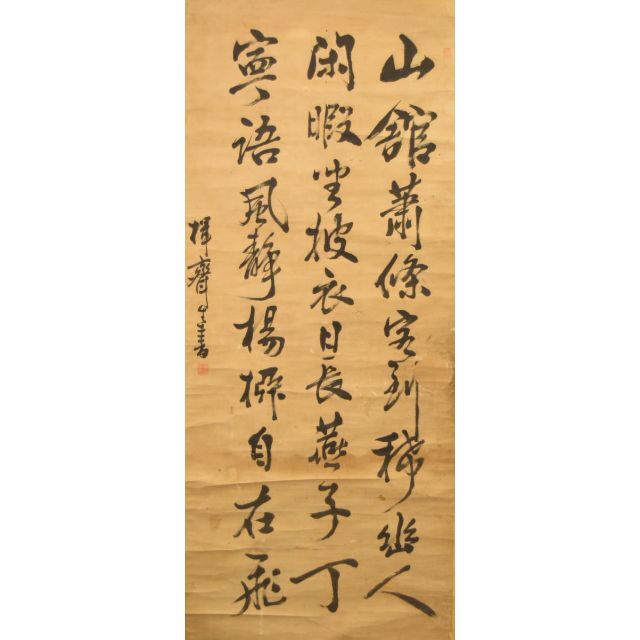 山館蕭條客到稀幽人
閑暇坐披衣日長燕子丁
寧語風靜楊花自在飛
揮齋生書